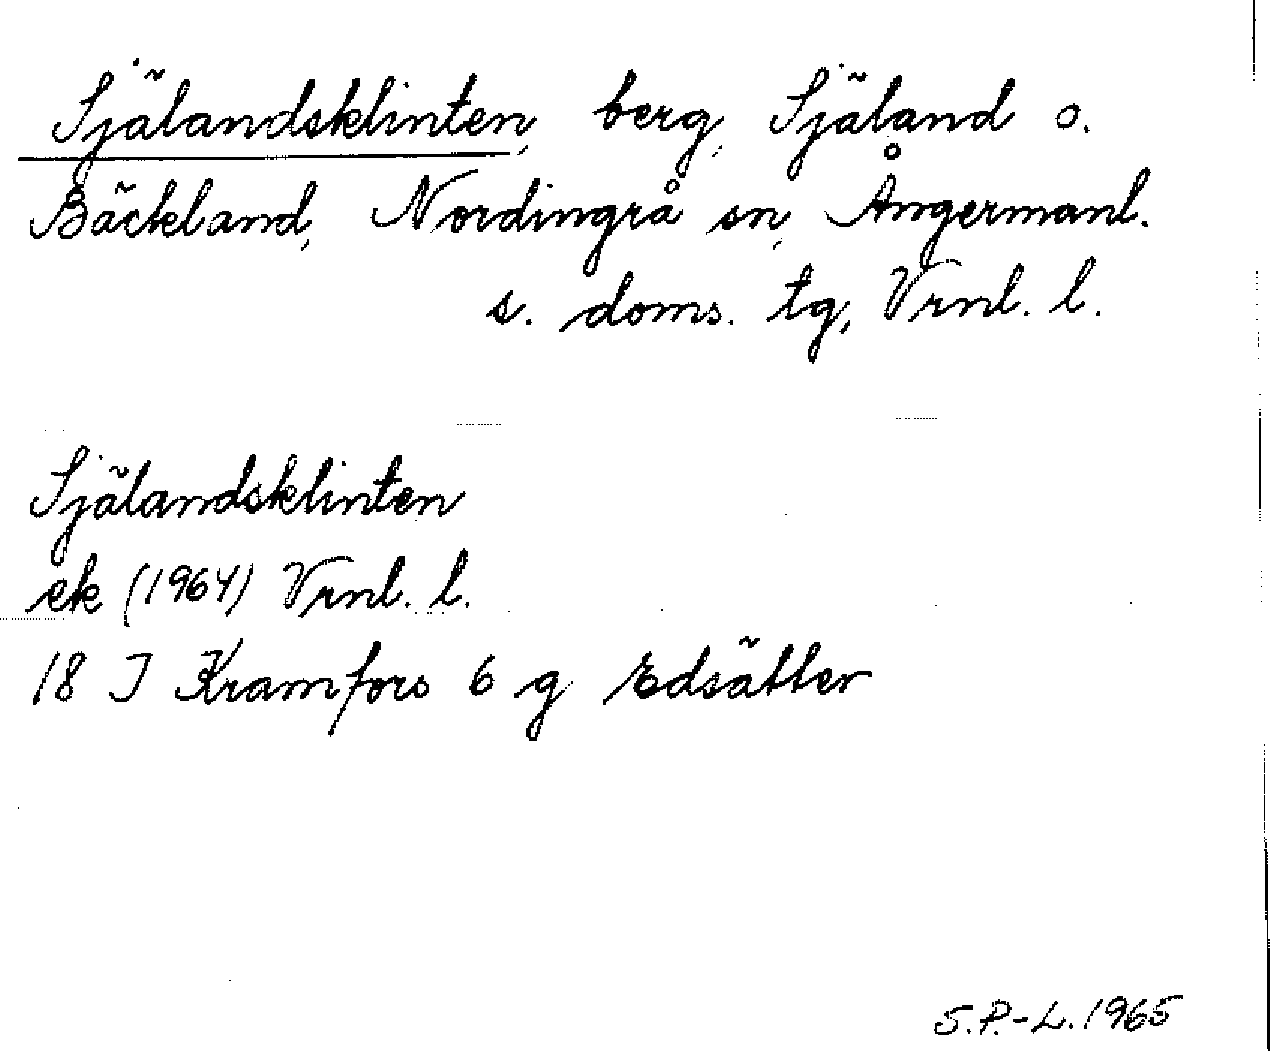 Själandsklinten, berg, Själand o.
Bäckland, Nordingrå sn, Ångermanl.
s. doms. tg, Vrnl. l.
Själandsklinten
ek (1964) Vrnl. l.
18 J Kramfors 6 g Edsätter
S.P.-L. 1965